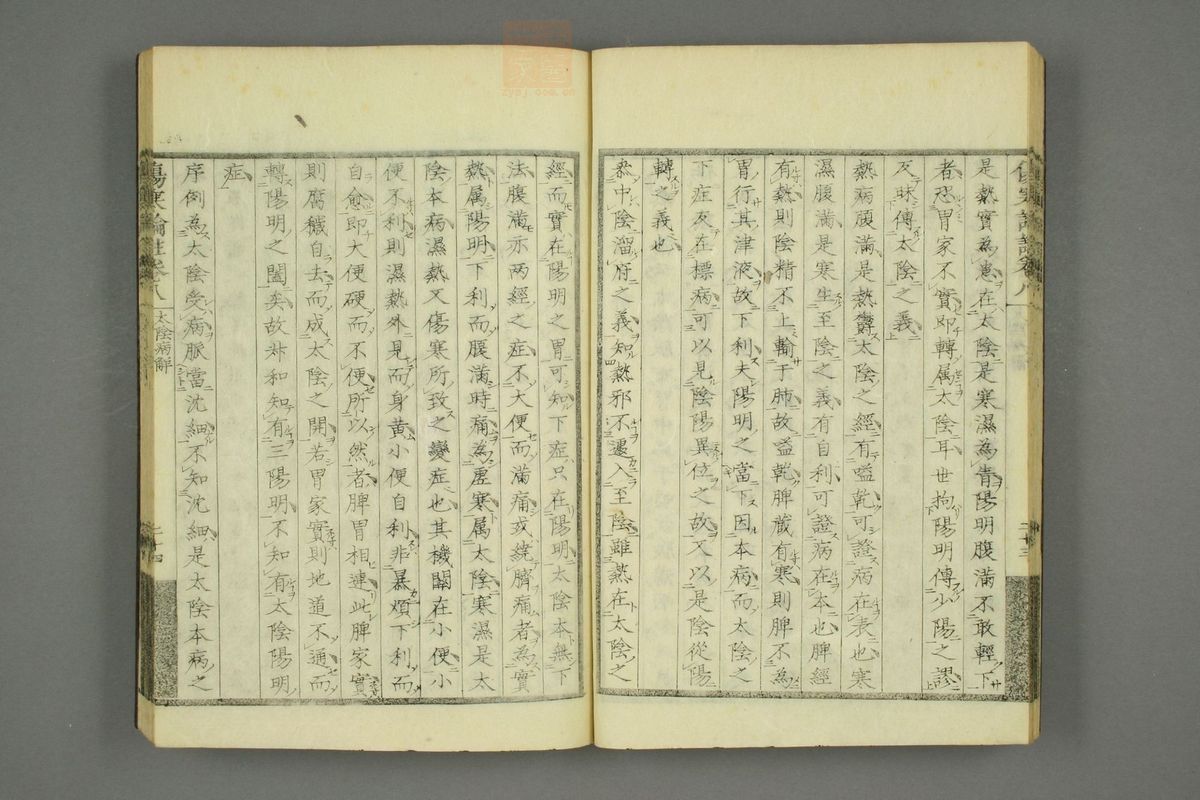 是熱實為患在太陰是寒濕為眚陽明腹滿不敢輕下
者恐胃家不實即轉属太陰耳世拘陽明傳少陽之謬
反昧傳太陰之義
熱病腹滿是熱欝太陰之經有嗌乾可證病在表也寒
濕腹滿是寒生至陰之義有自利可證病在本也脾經
有熱則陰精不上輸于肺故嗌乾脾藏有寒則脾不為
胃行其津液故下利夫陽明之當下因本病而太陰之
下症反在標病可以見陰陽異位之故又以是陰從陽
轉之義也
熱中陰溜府之義知熱邪不遽入至陰雖熱在太陰之
傷寒論註卷八 太陰病解 二十四
經而實在陽明之胃可知下症只在陽明太陰本無下
法腹滿亦两經之症不大便而滿痛或繞臍痛者為實
熱属陽明下利而腹滿時痛為虚寒属太陰寒濕是太
陰本病濕熱又傷寒所致之變症也其機關在小便小
便不利則濕熱外見而身黄小便自利非暴煩下利而
自愈即大便硬而不便所以然者脾胃相連此脾家實
則腐穢自去而成太陰之開若胃家實則地道不通而
轉陽明之闔矣故叔和知有三陽明不知有太陰陽明
症
序例為太陰受病脈當沈細不知沈細是太陰本病之